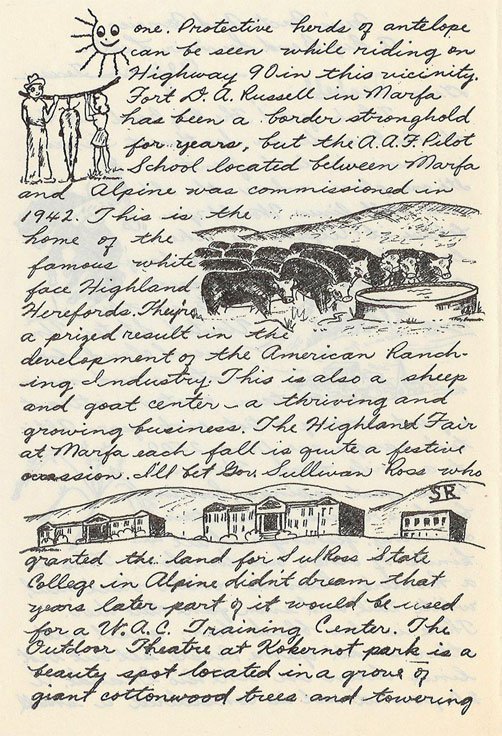 one. Protective herds of antelope
can be seen while riding on
Highway 90 in this vicinity.
Fort D. A. Russell in Marfa
has been a border stronghold
for years, but the A.A.F. Pilot
School located between Marfa
and Alpine was commissioned in
1942. This is the
home of the
famous white
face Highland
Herefords. They're
a prized result in the
development of the American Ranch-
ing Industry. This is also a sheep
and goat center - a thriving and
growing business. The Highland Fair
at Marfa each fall is quite a festive
occassion. I'll bet Gov. Sullivan Ross who
SR
granted the land for Sul Ross State
College in Alpine didn't dream that
years later part of it would be used
for a W.A.C. Training Center. The
Outdoor Theatre at Kokernot park is a
beauty spot located in a grove of
giant cottonwood trees and towering